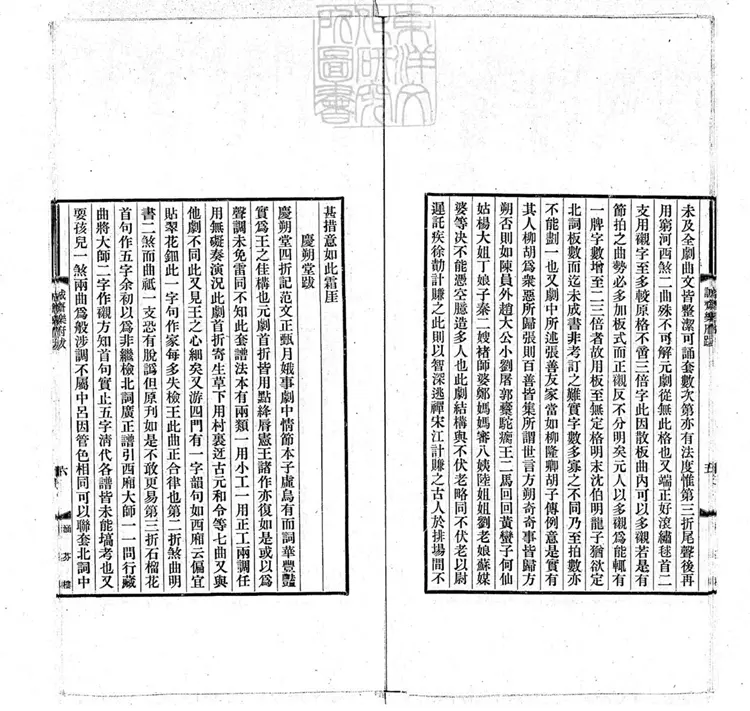 未及全劇曲文皆整潔可誦套數次第亦有法度惟第三折尾聲後再
用窮河西煞二曲殊不可解元劇從無此格也又端正好滾繡毬首二
支用襯字至多較原格不啻三倍字此因散板曲內可以多襯若是有
節拍之曲勢必多加板式而正襯反不分明矣元人以多襯為能輒有
一牌字數增至二三倍者故用板至無定格明末沈伯明龍子猶欲定
北詞板數而迄未成書非考訂之難實字數多寡之不同乃至拍數亦
不能劃一也又劇中所述張善友家當如柳隆卿胡子傳例意是實有
其人柳胡為衆惡所歸張則百善皆集所謂世言方朔奇奇事皆歸方
朔否則如陳員外趙大公小劉屠郭橐駝癘王二馬回回黃蠻子何仙
姑楊大姐丁娘子秦二嫂褚師婆鄭媽媽審八姨陸姐姐劉老娘蘇媒
婆等決不能憑空臆造多人也此劇結構與不伏老略同不伏老以尉
遲託疾徐勣計賺之此則以智深逃禪宋江計賺之古人於排場間不
甚措意如此霜厓
慶朔堂跋
慶朔堂四折記范文正甄月娥事劇中情節本子虛烏有而詞華豐豔
實為王之佳構也元劇首折皆用點絳唇憲王諸作亦復如是或以為
聲調未免雷同不知此套譜法本有兩類一用小工一用正工兩調任
用無礙奏演況此劇首折寄生草下用村裏迓古元和令等七曲又與
他劇不同此又見王之心細矣又游四門有一字韻句如西廂云偏宜
貼翠花鈿此一字句作家每多失檢王此曲正合律也第二折煞曲明
書二煞而曲祇一支恐有脫譌但原刋如是不敢更易第三折石榴花
首句作五字余初以為非繼檢北詞廣正譜引西廂大師一一問行藏
曲將大師二字作襯方知首句實止五字清代各譜皆未能墒考也又
耍孩兒一煞兩曲為般涉調不屬中呂因管色相同可以聯套北詞中
誠齋樂府跋
五
誠齋樂府跋
六
涵芬樓
東洋文
化研究
所圖書